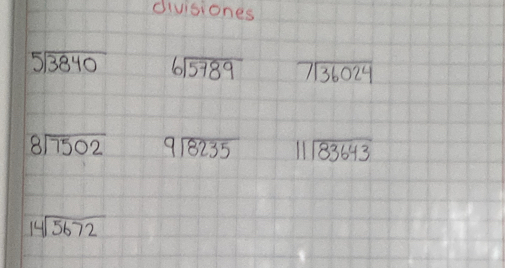 divisiones
5⟌3840 6⟌5789 7⟌36024
8⟌7502 9⟌8235 11⟌83643
14⟌5672